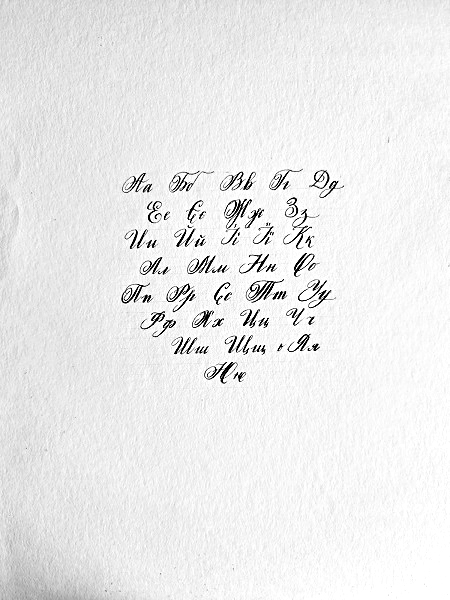 Аа Бб Вв Гг Дд
Ее Єє Жж Зз
Ии Йй Іі Її Кк
Лл Мм Нн Оо
Пп Рр Сс Тт Уу
Фф Хх Цц Чч
Шш Щщ ь Яя
Юю